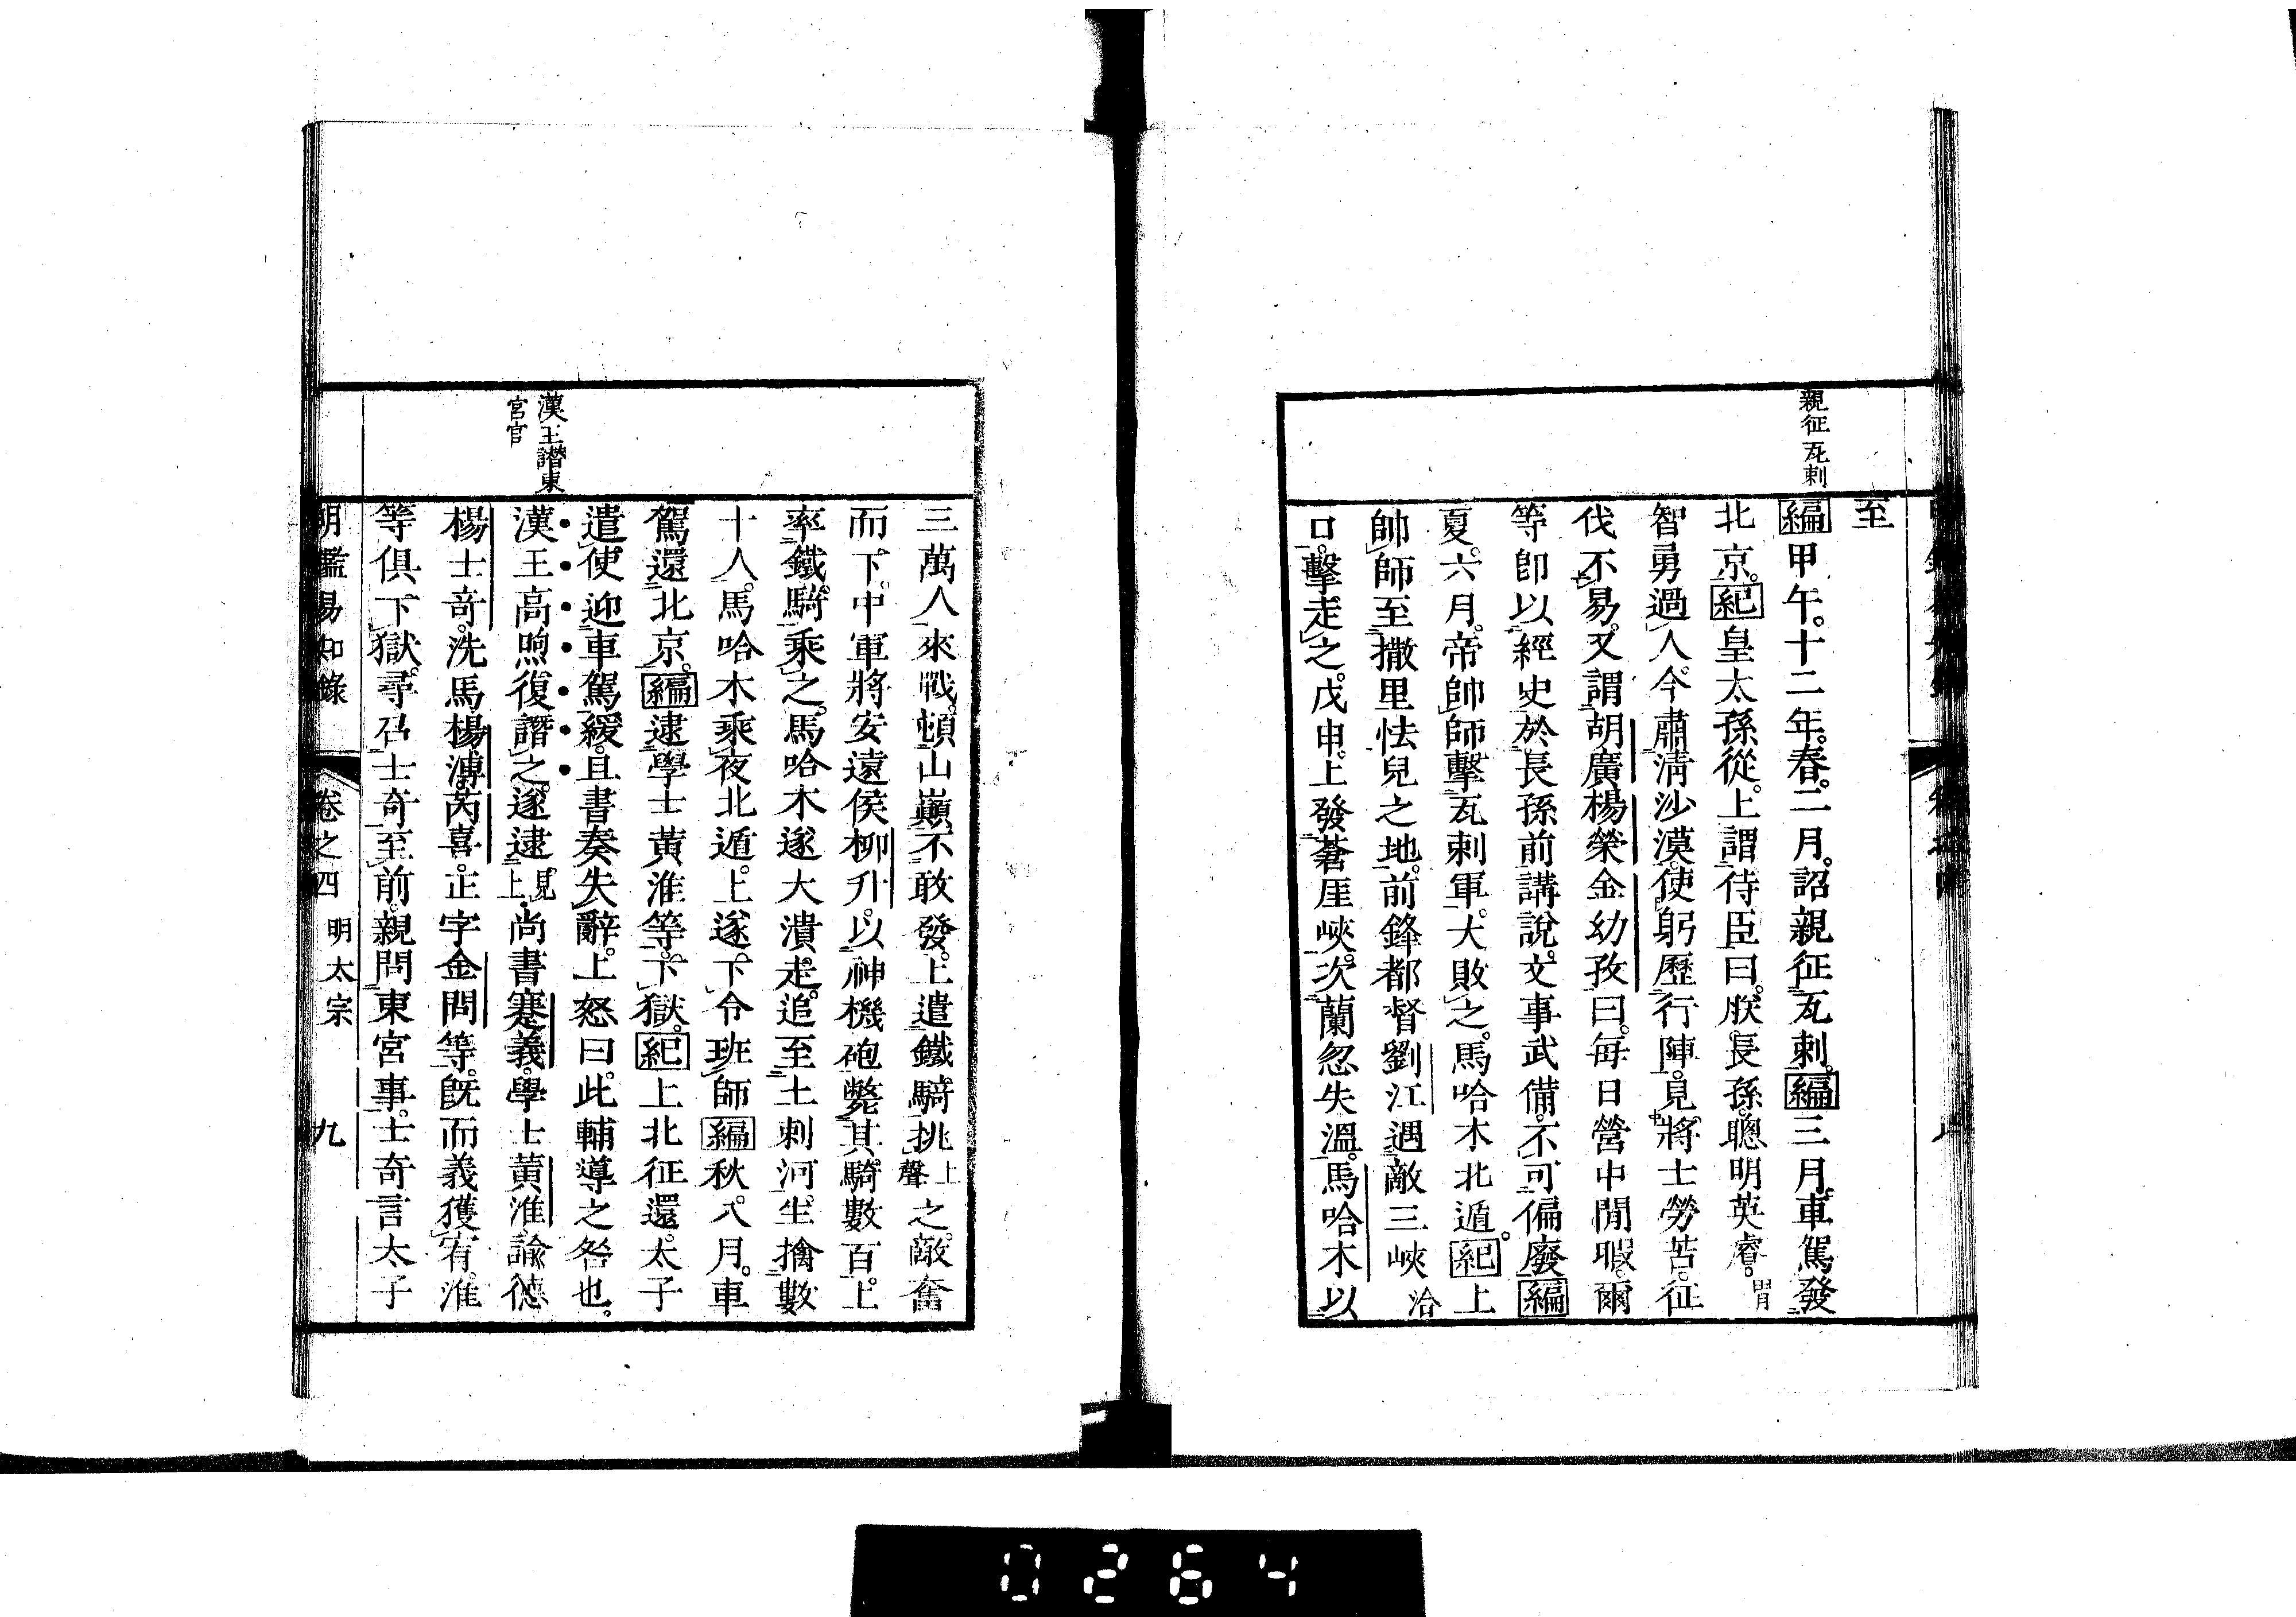 親征瓦剌
至
編甲午。十二年。春。二月。詔親征瓦剌。編三月。車駕發
北京。紀皇太孫從。上謂侍臣曰。朕長孫。聰明英睿。
智勇過人。今肅淸沙漠。使躬歷行陣。見將士勞苦。征
伐不易。又謂胡廣楊榮金幼孜曰。每日營中閒暇。爾
等卽以經史於長孫前講說。文事武備。不可偏廢編
夏。六月。帝帥師擊瓦剌軍。大敗之。馬哈木北遁。紀上
帥師至撒里怯兒之地。前鋒都督劉江遇敵三峽
口。擊走之。戊申。上發蒼厓峽。次蘭忽失溫。馬哈木以
三萬人來戰。頓山巔不敢發。上遣鐵騎挑上聲之。敵奮
而下。中軍將安遠侯柳升。以神機砲斃其騎數百。上
率鐵騎乘之。馬哈木遂大潰走。追至土剌河。生擒數
十人。馬哈木乘夜北遁。上遂下令班師編秋。八月。車
駕還北京。編逮學士黃淮等。下獄。紀上北征還。太子
遣使迎車駕緩。且書奏失辭。上怒曰。此輔導之咎也。
漢王譖東
宮官
漢王高煦復譖之。遂逮見上。尚書蹇義。學士黃淮。諭德
楊士奇。洗馬楊溥。芮喜。正字金問等。旣而義獲宥。淮
等俱下獄。尋召士奇至前。親問東宮事。士奇言太子
明鑑易知錄 卷之四 明太宗 九
0264